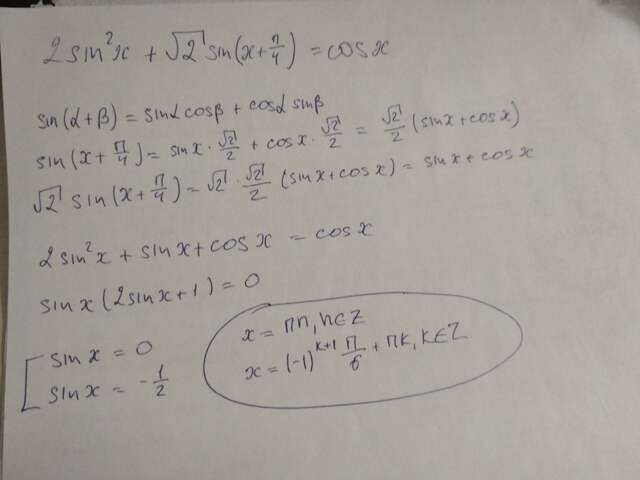 2sin²x + √2 sin(x+π/4) = cosx
sin(α+β) = sinα cosβ + cosα sinβ
sin(x+π/4) = sinx · √2/2 + cosx · √2/2 = √2/2 (sinx+cosx)
√2 sin(x+π/4) = √2 · √2/2 (sinx+cosx) = sinx + cosx
2sin²x + sinx + cosx = cosx
sinx(2sinx+1) = 0
[ sinx = 0
sinx = -1/2
x = πn, n∈Z
x = (-1)^(k+1) π/6 + πk, k∈Z